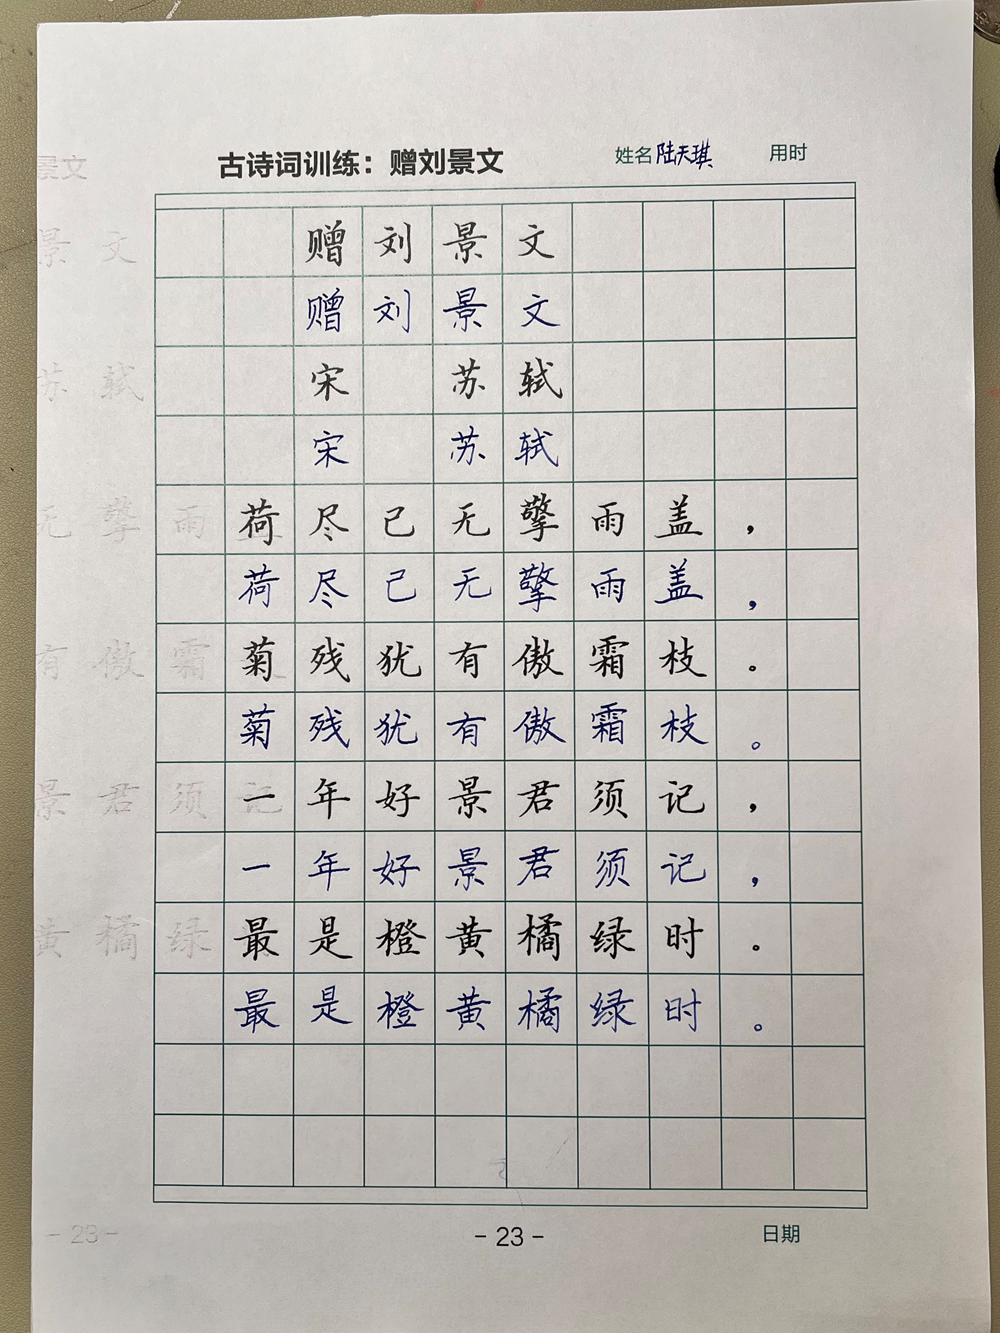 古诗词训练：赠刘景文 姓名陆天琪 用时
赠刘景文
赠刘景文
宋 苏轼
宋 苏轼
荷尽已无擎雨盖，
荷尽已无擎雨盖，
菊残犹有傲霜枝。
菊残犹有傲霜枝。
一年好景君须记，
一年好景君须记，
最是橙黄橘绿时。
最是橙黄橘绿时。
- 23 - 日期
景文
景文
苏轼
无擎雨
有傲霜
景君须记
黄橘绿
- 23 -